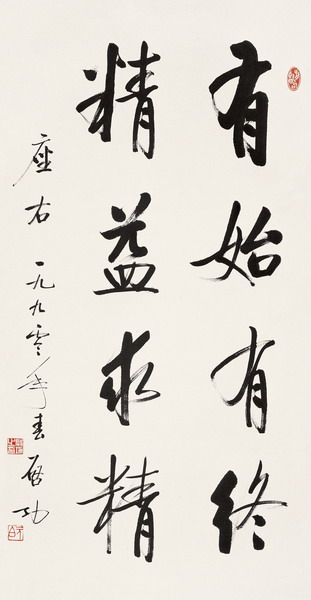 有始有終
精益求精
座右 一九九零年春 启功